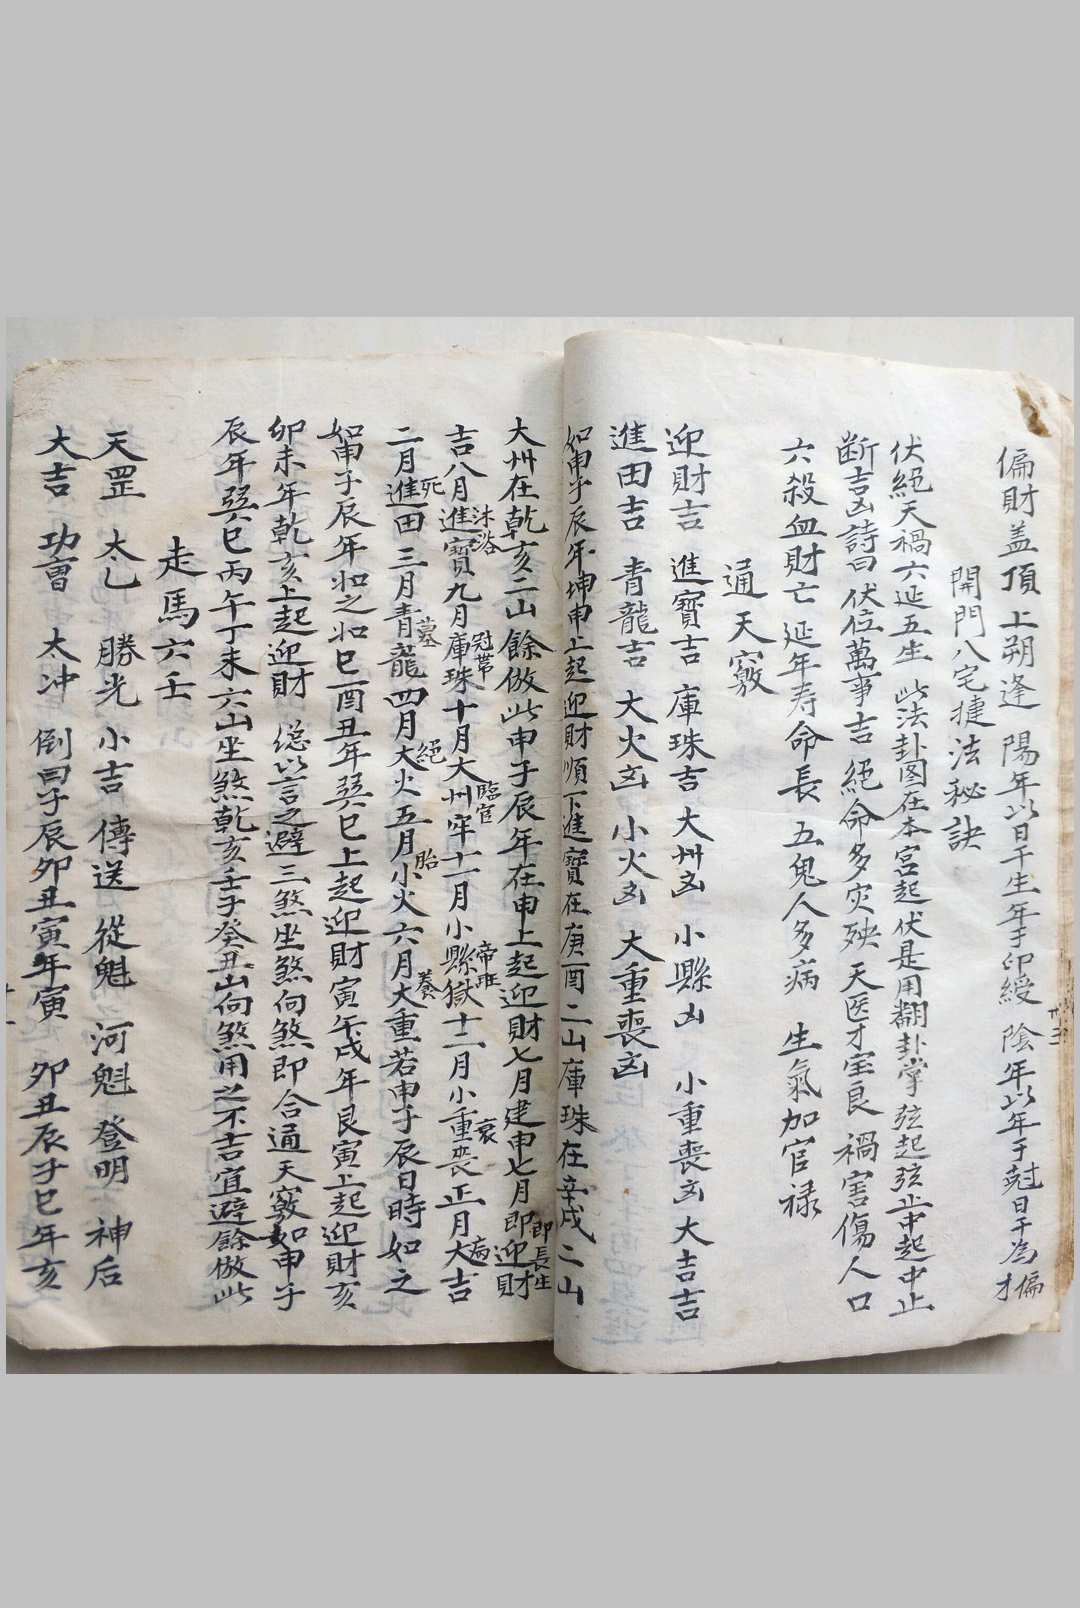 偏財盖頂 上朔逢 陽年以日干生年干印綬 陰年以年干尅日干為偏才
開門八宅捷法秘訣
伏絕天禍六延五生 此法卦图在本宮起伏是用翻卦掌 弦起弦止中起中止
断吉凶詩曰 伏位萬事吉 絕命多灾殃 天医才宝良 禍害傷人口
六殺血財亡 延年寿命長 五鬼人多病 生氣加官禄
通天竅
迎財吉 進寶吉 庫珠吉 大州凶 小縣凶 小重喪凶 大吉吉
進田吉 青龍吉 大火凶 小火凶 大重喪凶
如申子辰年坤申上起迎財順下進寶在庚酉二山庫珠在辛戌二山
大州在乾亥二山餘倣此申子辰年在申上起迎財七月建申七月即迎財
即長生
吉八月進寶九月庫珠十月大州牢十一月小縣獄十二月小重喪正月大吉
沐浴 冠帶 臨官 帝旺 衰 病
二月進田三月青龍四月大火五月小火六月大重若申子辰日時如之
死 墓 絕 胎 養
如申子辰年如之如巳酉丑年巽巳上起迎財寅午戌年艮寅上起迎財亥
卯未年乾亥上起迎財 緫以言之避三煞坐煞向煞即合通天竅如申子
辰年巽巳丙午丁未六山坐煞乾亥壬子癸丑山向煞用之不吉宜避餘倣此
走馬六壬
天罡 太乙 勝光 小吉 傳送 從魁 河魁 登明 神后
大吉 功曺 太冲 倒曰子辰卯丑寅年寅 卯丑辰子巳年亥